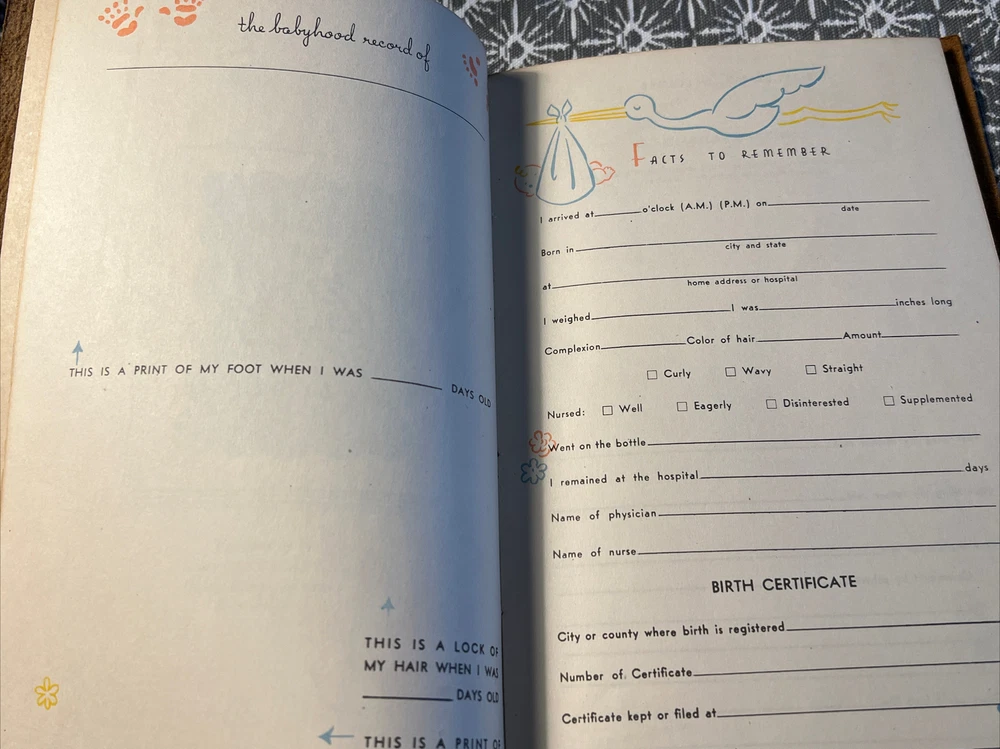 the babyhood record of
THIS IS A PRINT OF MY FOOT WHEN I WAS ________ DAYS OLD
THIS IS A LOCK OF
MY HAIR WHEN I WAS
________ DAYS OLD
THIS IS A PRINT OF
FACTS TO REMEMBER
I arrived at________o'clock (A.M.) (P.M.) on________
date
Born in________
city and state
at________
home address or hospital
I weighed________I was________inches long
Complexion________Color of hair________Amount________
☐ Curly ☐ Wavy ☐ Straight
Nursed: ☐ Well ☐ Eagerly ☐ Disinterested ☐ Supplemented
Went on the bottle________
I remained at the hospital________days
Name of physician________
Name of nurse________
BIRTH CERTIFICATE
City or county where birth is registered________
Number of Certificate________
Certificate kept or filed at________